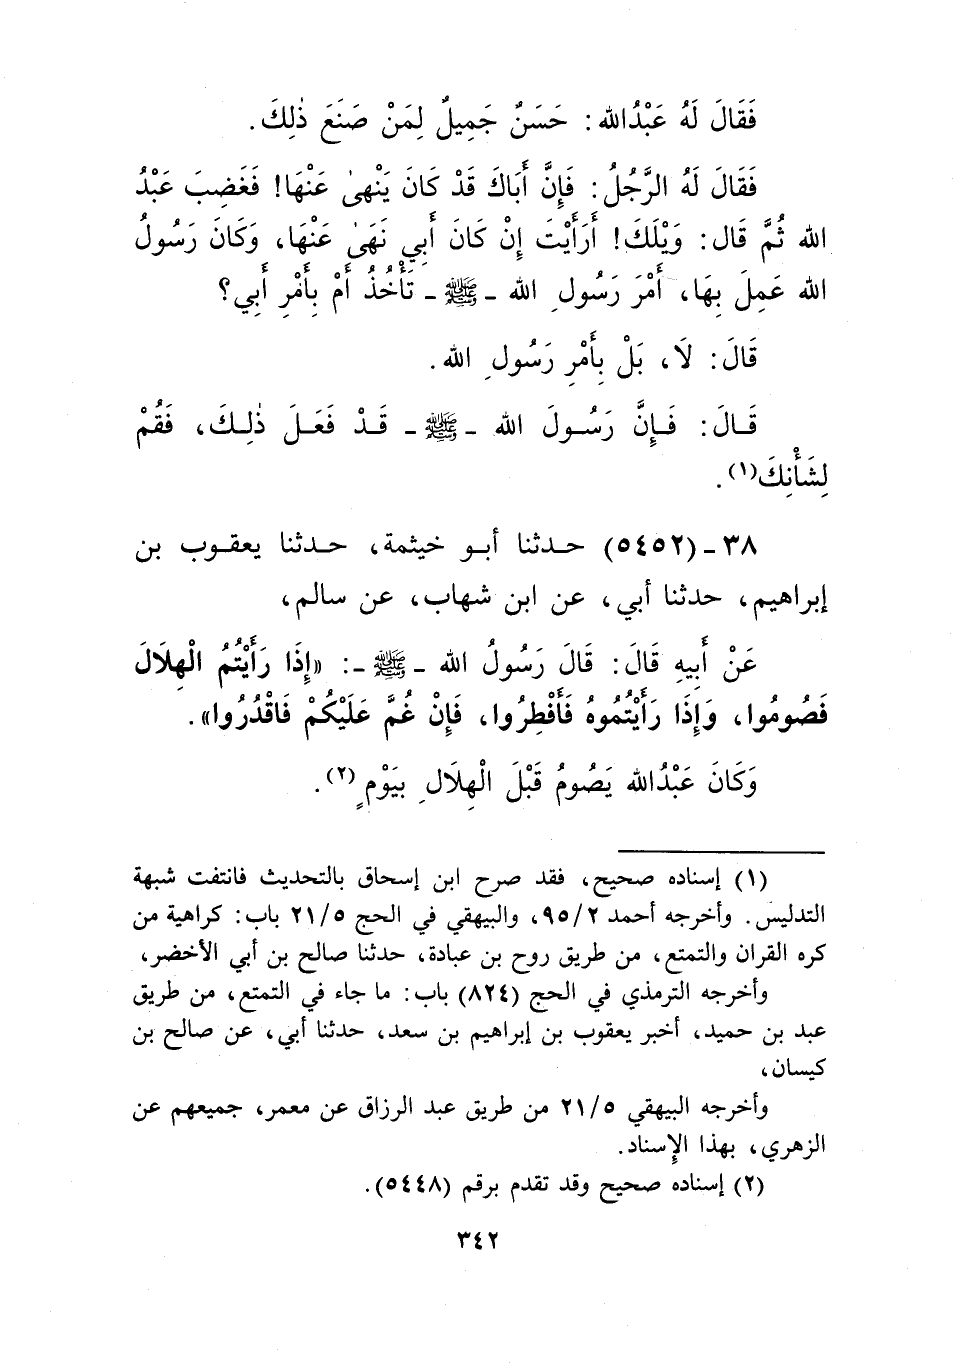 فَقَالَ لَهُ عَبْدُالله : حَسَنٌ جَمِيلٌ لِمَنْ صَنَعَ ذٰلِكَ .
فَقَالَ لَهُ الرَّجُلُ : فَإِنَّ أَبَاكَ قَدْ كَانَ يَنْهىٰ عَنْهَا! فَغَضِبَ عَبْدُ
الله ثُمَّ قَال : وَيْلَكَ! أَرَأَيْتَ إِنْ كَانَ أَبِي نَهَىٰ عَنْهَا، وَكَانَ رَسُولُ
الله عَمِلَ بِهَا، أَمْرَ رَسُولِ الله ـ ﷺ ـ تَأْخُذُ أَمْ بِأَمْرِ أَبِي؟
قَالَ : لَا، بَلْ بِأَمْرِ رَسُولِ الله .
قَـالَ : فَـإِنَّ رَسُـولَ الله ـ ﷺ ـ قَـدْ فَعَـلَ ذٰلِـكَ، فَقُمْ
لِشَأْنِكَ(١) .
٣٨ ـ (٥٤٥٢) حـدثنا أبـو خيثمة، حـدثنا يعقـوب بن
إبراهيم، حدثنا أبي، عن ابن شهاب، عن سالم،
عَنْ أَبِيهِ قَالَ : قَالَ رَسُولُ الله ـ ﷺ ـ : «إِذَا رَأَيْتُمُ الْهِلَالَ
فَصُومُوا، وَإِذَا رَأَيْتُمُوهُ فَأَفْطِرُوا، فَإِنْ غُمَّ عَلَيْكُمْ فَاقْدُرُوا» .
وَكَانَ عَبْدُالله يَصُومُ قَبْلَ الْهِلَالِ بيَوْمٍ (٢) .
(١) إسناده صحيح، فقد صرح ابن إسحاق بالتحديث فانتفت شبهة
التدليس . وأخرجه أحمد ٩٥/٢، والبيهقي في الحج ٢١/٥ باب : كراهية من
كره القران والتمتع، من طريق روح بن عبادة، حدثنا صالح بن أبي الأخضر،
وأخرجه الترمذي في الحج (٨٢٤) باب : ما جاء في التمتع، من طريق
عبد بن حميد، أخبر يعقوب بن إبراهيم بن سعد، حدثنا أبي، عن صالح بن
كيسان،
وأخرجه البيهقي ٢١/٥ من طريق عبد الرزاق عن معمر، جميعهم عن
الزهري، بهذا الإسناد.
(٢) إسناده صحيح وقد تقدم برقم (٥٤٤٨).
٣٤٢